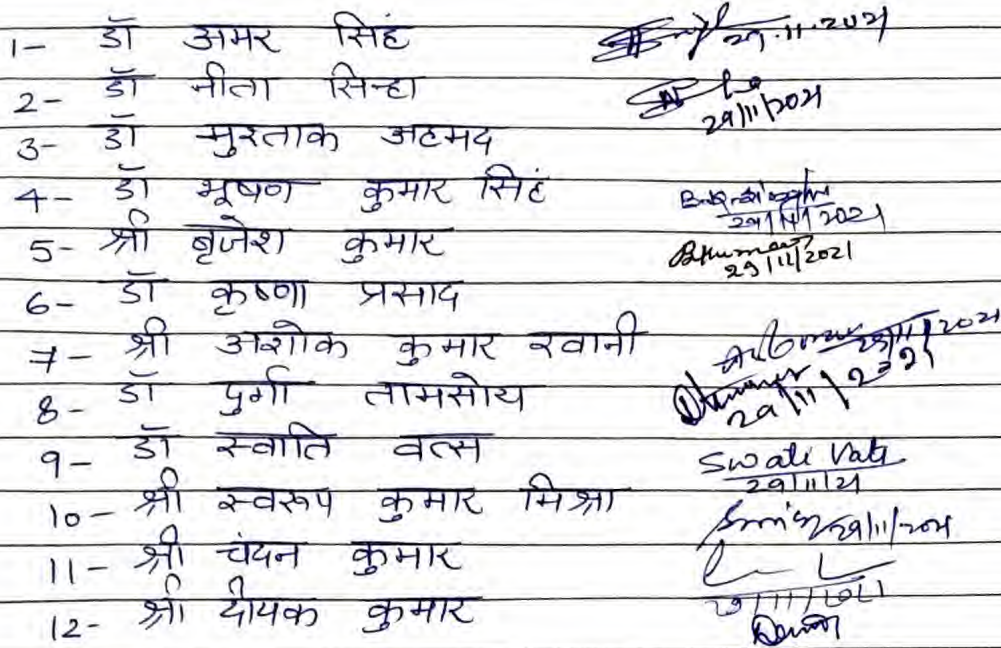 1- डॉ अमर सिहं 29.11.2021
2- डॉ नीता सिन्हा
29/11/2021
3- डॉ मुस्ताक अहमद
4- डॉ भूषण कुमार सिहं
29/11/2021
5- श्री बृजेश कुमार BKumar
29/11/2021
6- डॉ कृष्णा प्रसाद
7- श्री अशोक कुमार रवानी 29/11/2021
8- डॉ दुर्गा तामसोय
29/11/2021
9- डॉ स्वाति वत्स Swati Vats
29/11/21
10- श्री स्वरूप कुमार मिश्रा 29/11/2021
11- श्री चंदन कुमार
12- श्री दीपक कुमार